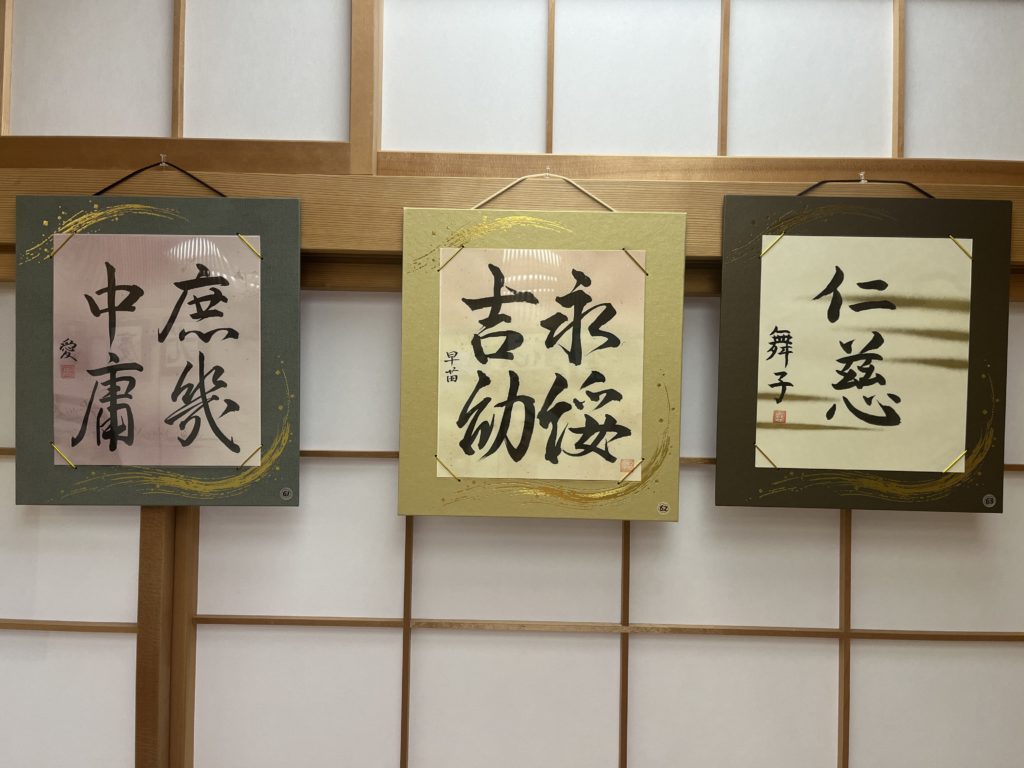 庶幾
中庸
愛
61
永綏
吉劭
早苗
62
仁慈
舞子
63